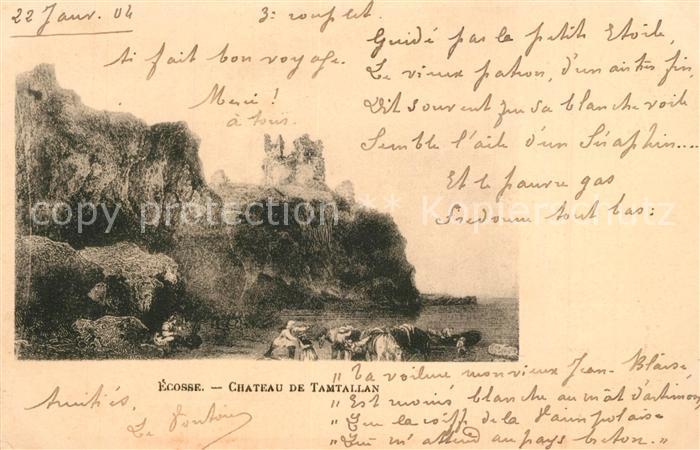 22 Janv. 04
3e couplet.
ti fait bon voyage.
Merci !
à tous.
Guidé par la petit Etoile,
Le vieux patron, d'un air très fin
Dit souvent que sa blanche voile
Semble l'aile d'un Séraphin....
Et le pauvre gas
Fredonne tout bas :
copy protection ** Kopierschutz **
ÉCOSSE. — CHATEAU DE TAMTALLAN
Amitiés,
Le
"La voilure mon vieux Jean-Blaise
"Est moins blanche au mât d'artimon
"Que la coiffe de la Paimpolaise
"Qui m'attend au pays breton."